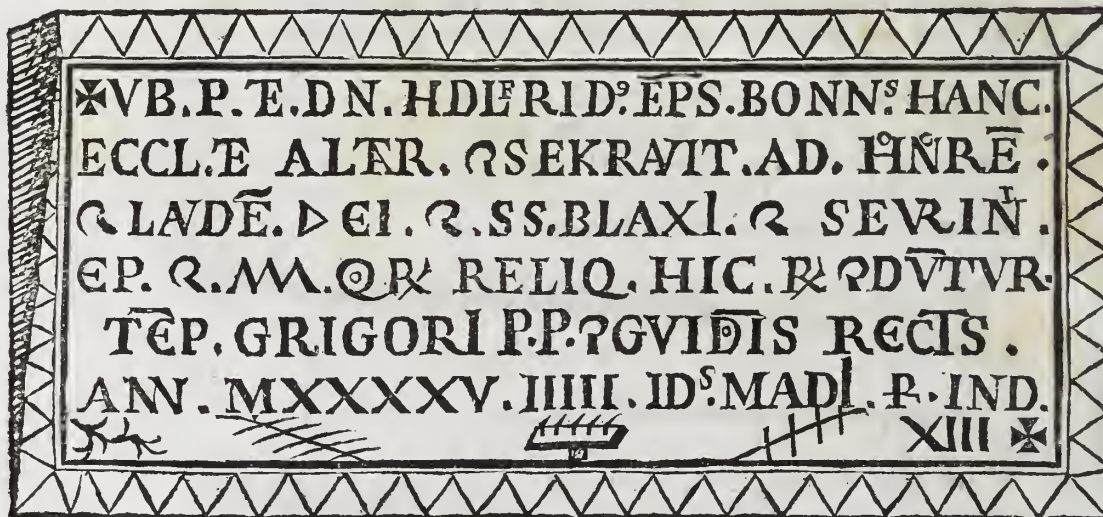 ✠VB.P.Æ.DN.HDLFRID⁹.EP̅S.BONNˢ.HANC.
ECCL.Æ ALTAR. ꝯSEKRAVIT.AD.HONRĒ.
⁊ LAVDĒ.DEI.⁊.SS.BLAXI.⁊ SEVRINI.
EP.⁊.MM.QRꝜ RELIQ.HIC.Ꝝ ꝯDV̅TVR.
TĒP.GRIGORI P.P.⁊GVIDIS RECTS.
ANN.MXXXXXV.IIIII.IDˢ.MADI.P.IND.
XIII ✠